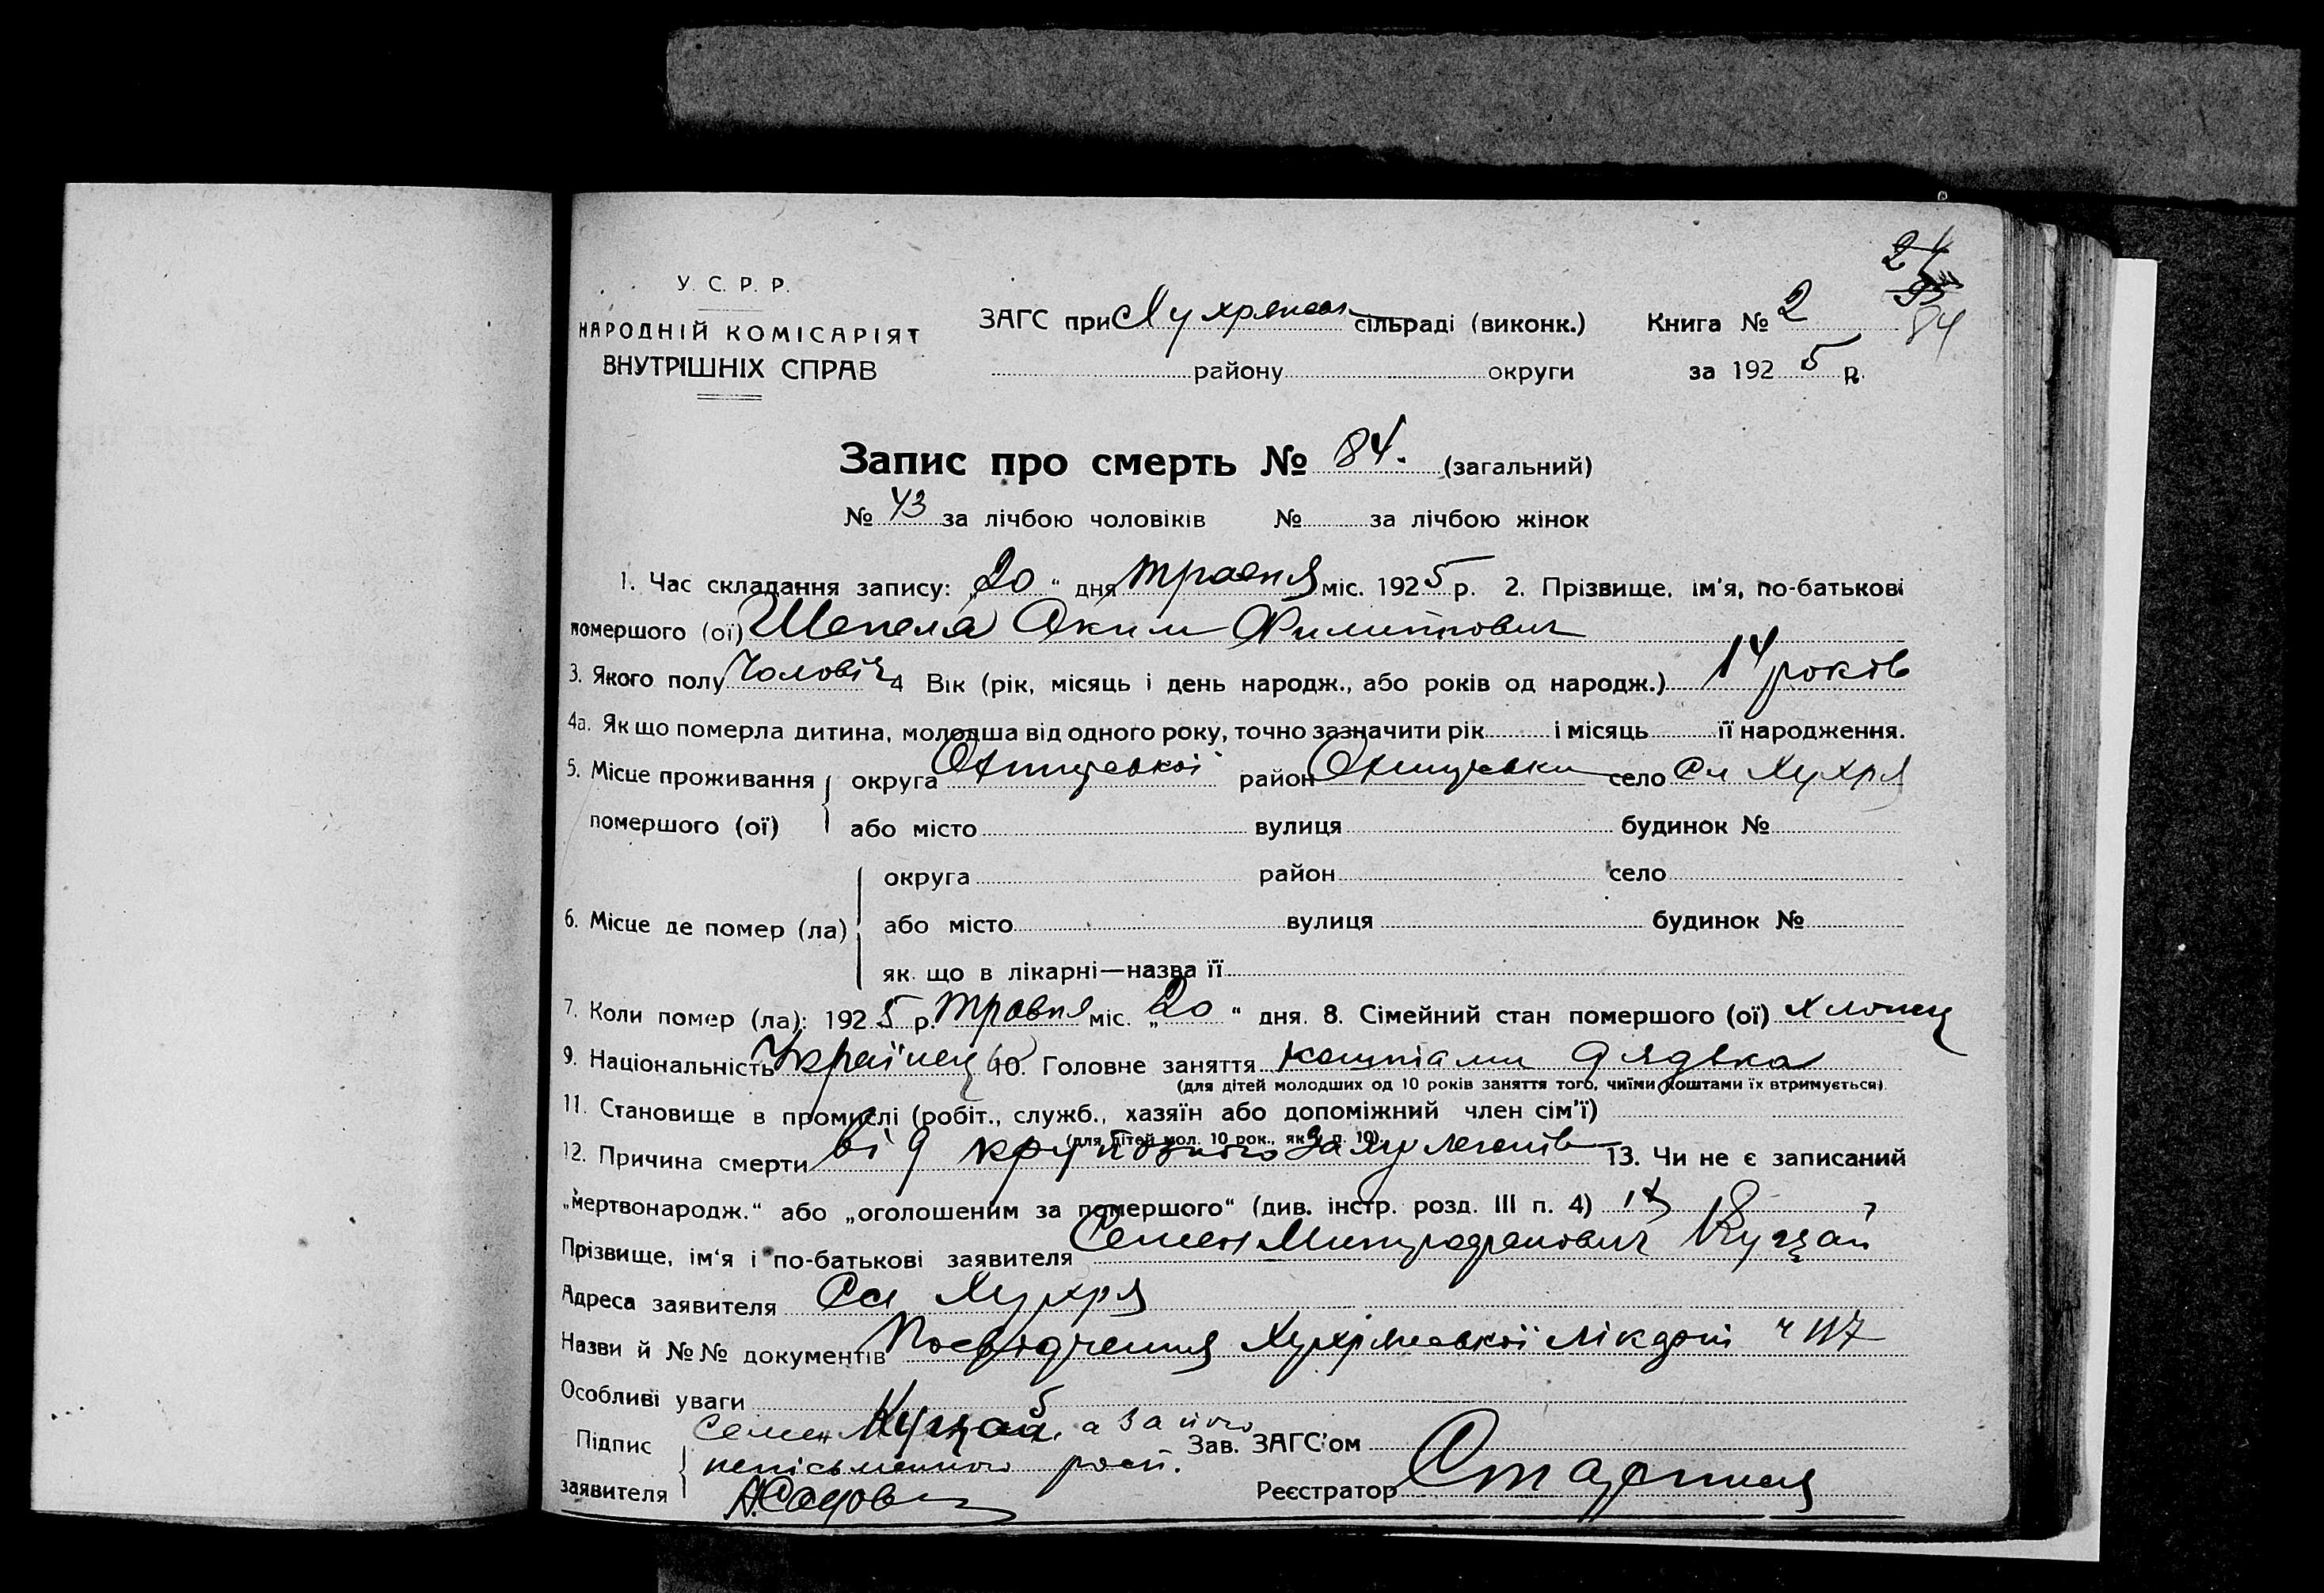 24
93
84
У. С. Р. Р.
НАРОДНІЙ КОМІСАРІЯТ
ВНУТРІШНІХ СПРАВ
ЗАГС при Хухрянськ сільраді (виконк.) Книга № 2
району округи за 1925 р.
Запис про смерть № 84. (загальний)
№ 43 за лічбою чоловіків № за лічбою жінок
1. Час складання запису: „20“ дня травня міс. 1925 р. 2. Прізвище, ім'я, по-батькові
помершого (ої) Шепеля Аким Филиппович
3. Якого полу Чоловіч 4 Вік (рік, місяць і день народж., або років од народж.) 14 років
4а. Як що померла дитина, молодша від одного року, точно зазначити рік і місяць її народження.
5. Місце проживання округа Охтирської район Охтирськи село Сл Хухря
помершого (ої) або місто вулиця будинок №
округа район село
6. Місце де помер (ла) або місто вулиця будинок №
як що в лікарні—назва її
7. Коли помер (ла): 1925 р. травня міс. „20“ дня. 8. Сімейний стан помершого (ої) хлопец
9. Національність Українец 10. Головне заняття коштами дядька
(для дітей молодших од 10 років заняття того, чиїми коштами їх втримується).
11. Становище в промислі (робіт., служб., хазяїн або допоміжний член сім'ї)
(для дітей мол. 10 рок., як у п. 10).
12. Причина смерти від крупозного запу легенів 13. Чи не є записаний
„мертвонародж.“ або „оголошеним за помершого“ (див. інстр. розд. III п. 4)
Прізвище, ім'я і по-батькові заявителя Семен Митрофанович Куцай
Адреса заявителя Сл Хухря
Назви й №№ документів Посвідчення Хухрянської лікдоп ч 117
Особливі уваги
Підпис Семен Куцай, а за його
неписьменного росп. Зав. ЗАГС'ом
заявителя Реєстратор